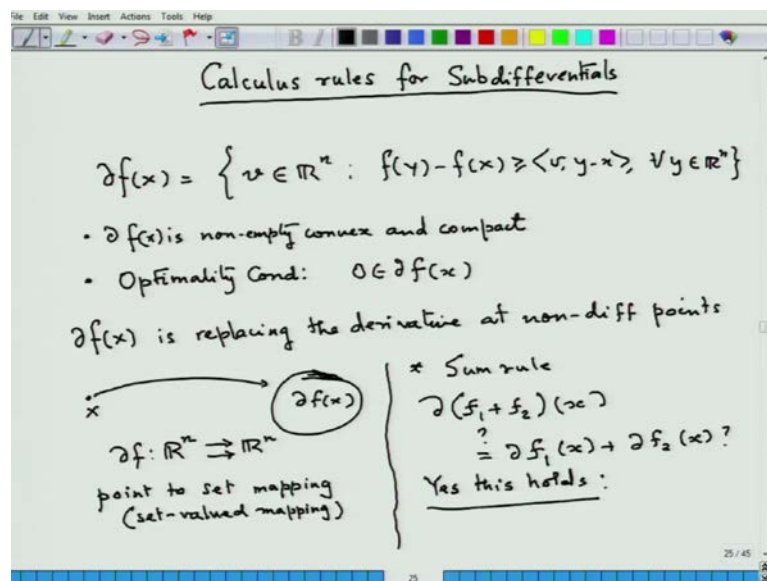 File Edit View Insert Actions Tools Help
Calculus rules for Subdifferentials
∂f(x) = { v ∈ ℝⁿ : f(y) - f(x) ≥ <v, y-x>, ∀ y ∈ ℝⁿ}
• ∂f(x) is non-empty convex and compact
• Optimality Cond: 0 ∈ ∂f(x)
∂f(x) is replacing the derivative at non-diff points
x ∂f(x)
∂f: ℝⁿ ⇉ ℝⁿ
point to set mapping
(set-valued mapping)
* Sum rule
∂(f₁ + f₂)(x)
?
= ∂f₁(x) + ∂f₂(x)?
Yes this holds:
25 / 45
25